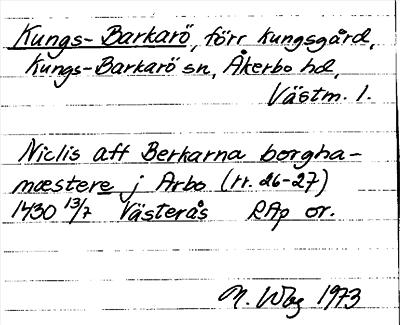 Kungs-Barkarö, förr kungsgård,
Kungs-Barkarö sn, Åkerbo hd,
Västm. l.
Niclis aff Berkarna borgha-
mæstere j Arbo (rr. 26-27)
1430 13/7 Västerås RAp or.
N. Wbg 1973